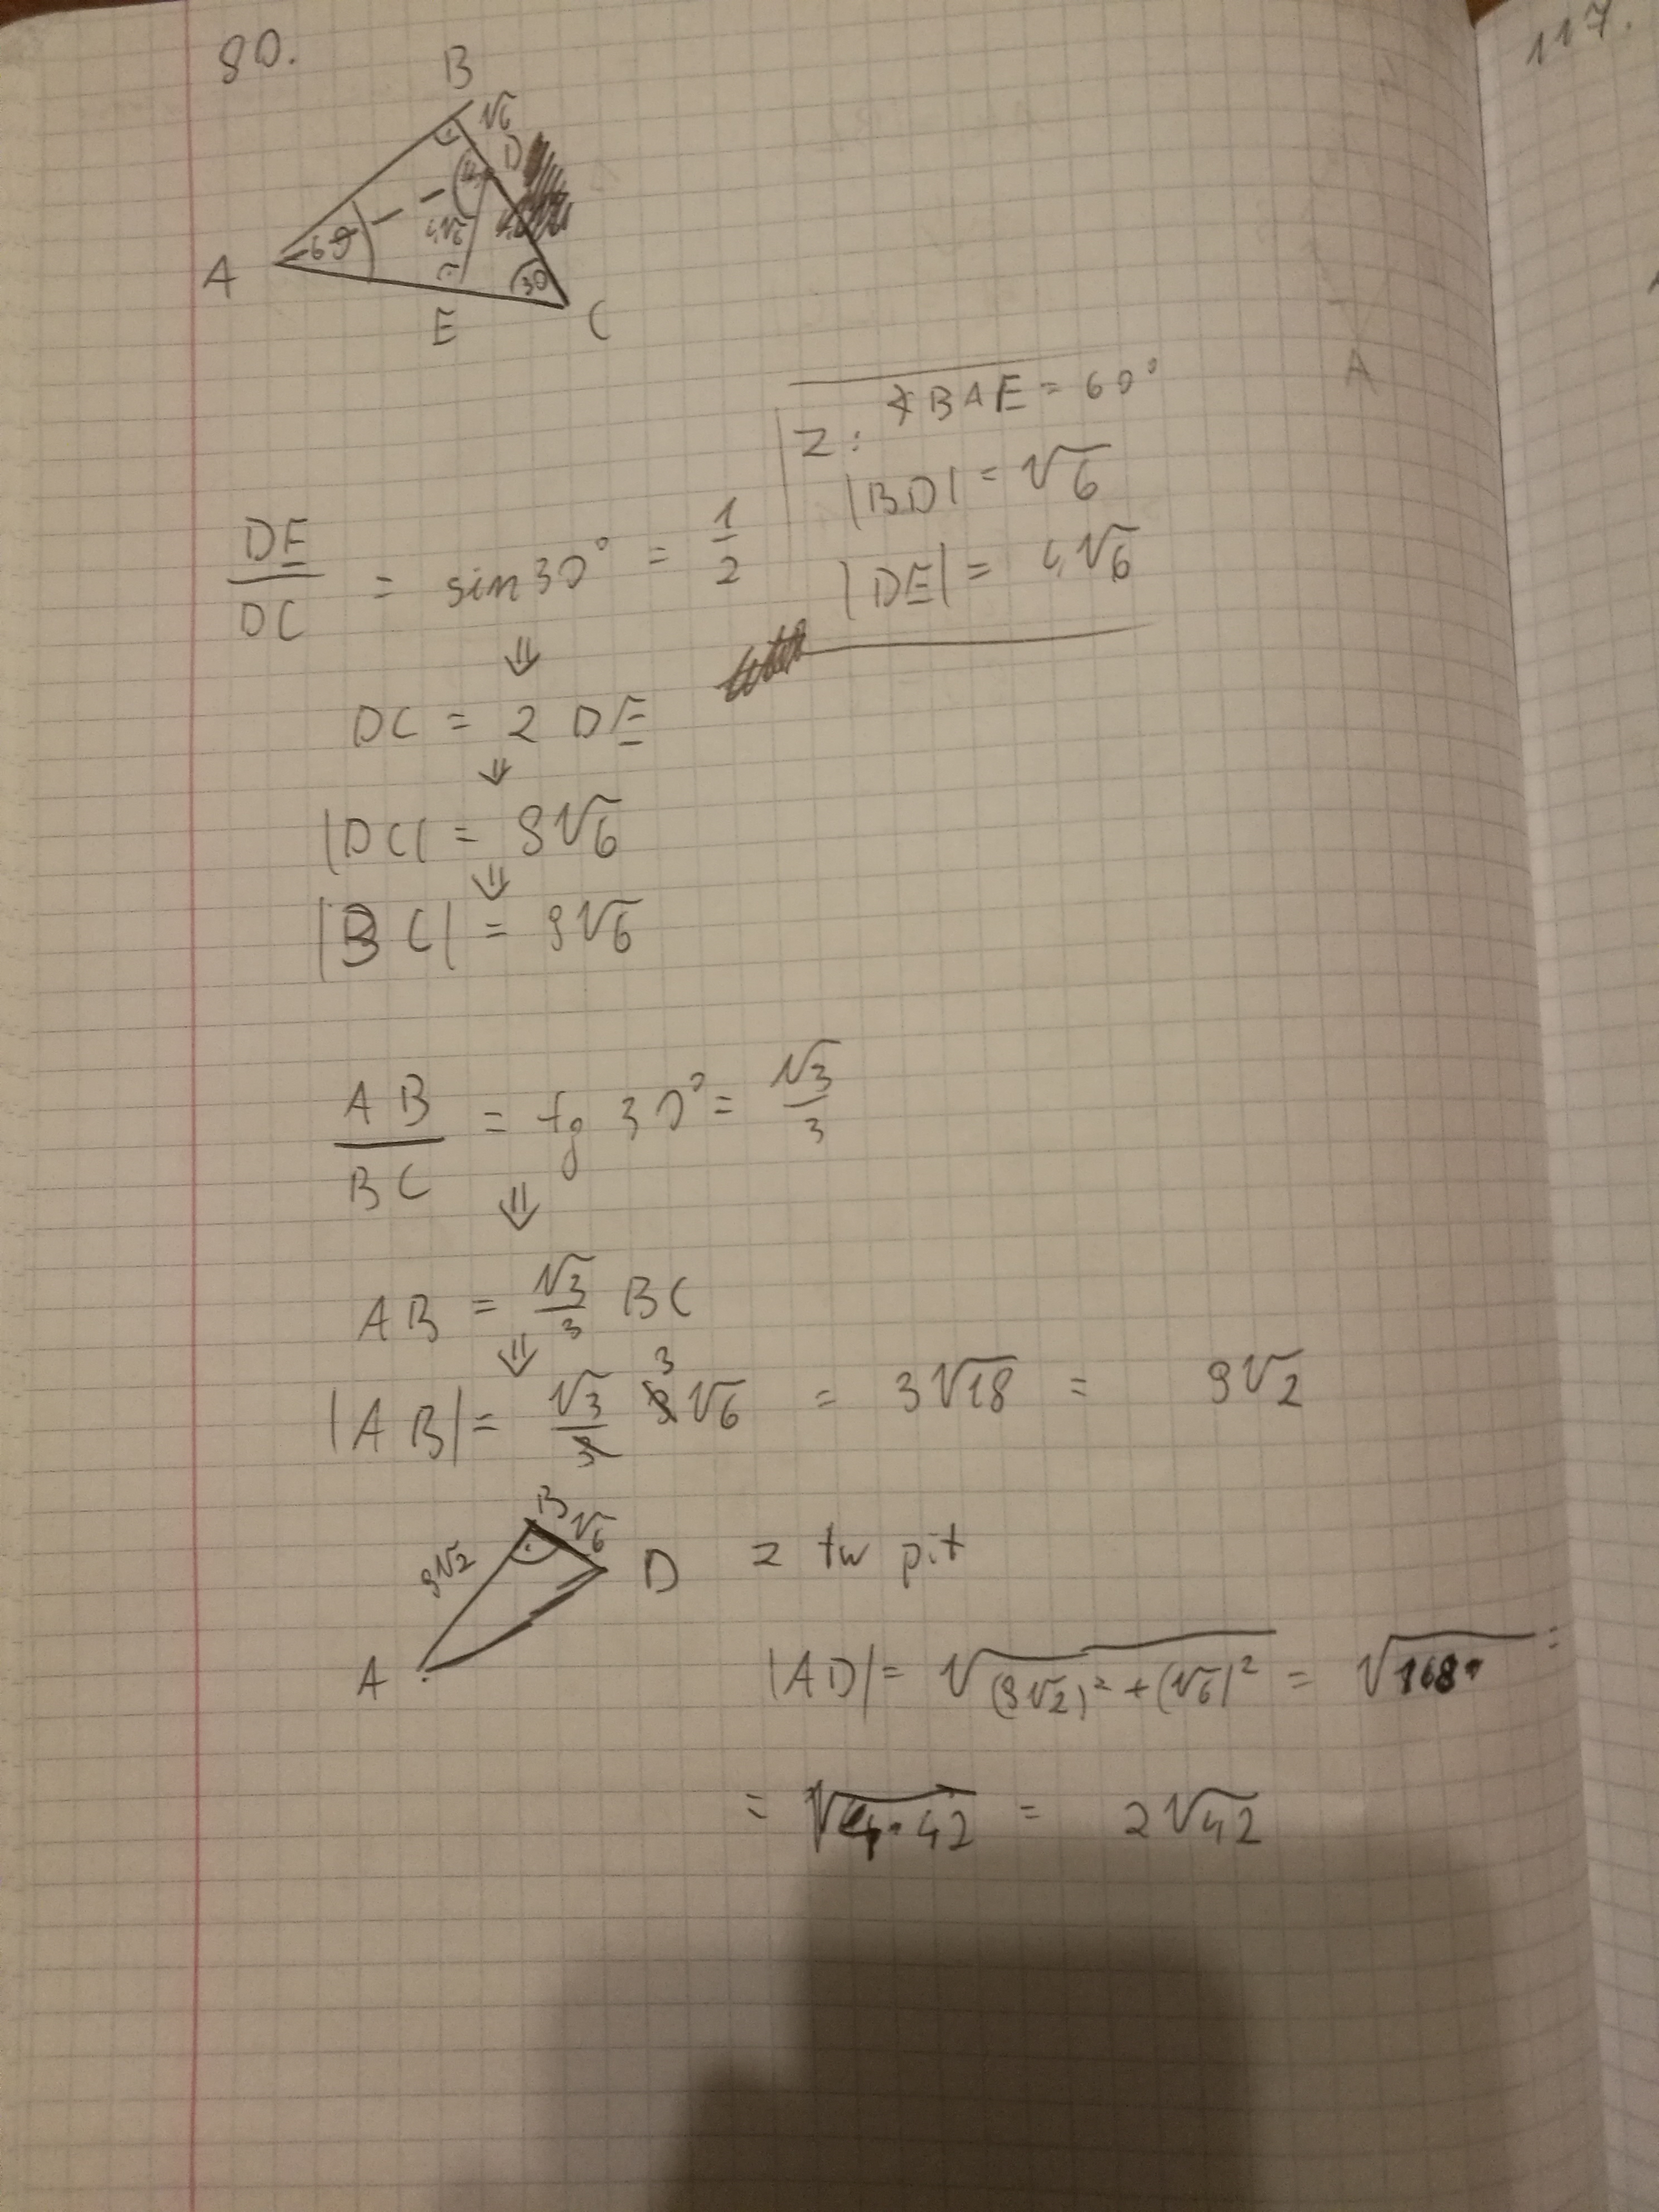 80.
117.
B
√6
D
60
4√6
A
30
E
C
∢BAE = 60°
Z:
|BD| = √6
|DE| = 4√6
A
DE/DC = sin30° = 1/2
⇓
DC = 2 DE
⇓
|DC| = 8√6
⇓
|BC| = 9√6
AB/BC = tg 30° = √3/3
⇓
AB = √3/3 BC
⇓
3
|AB| = √3/3 9√6 = 3√18 = 9√2
B
√6
9√2
D
z tw pit
A
|AD| = √((9√2)² + (√6)²) = √168 =
= √(4·42) = 2√42